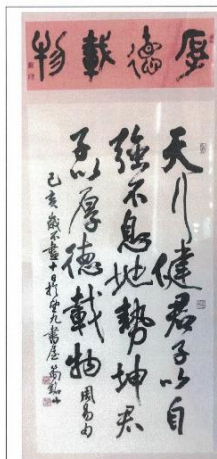 厚德載物
天行健君子以自
強不息地勢坤君
子以厚德載物 周易句
己亥歲不盡十日於
書屋